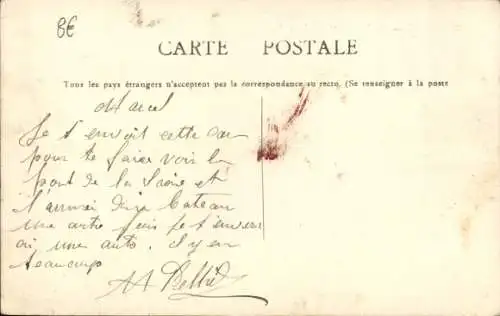 8€
CARTE POSTALE
Tous les pays étrangers n'acceptent pas la correspondance au recto. (Se renseigner à la poste
Marcel
Je t'envoit cette car
pour te faire voir le
pont de la Saône et
bateau
une autre fois je t'enverai
où une auto. il y en
beaucoup